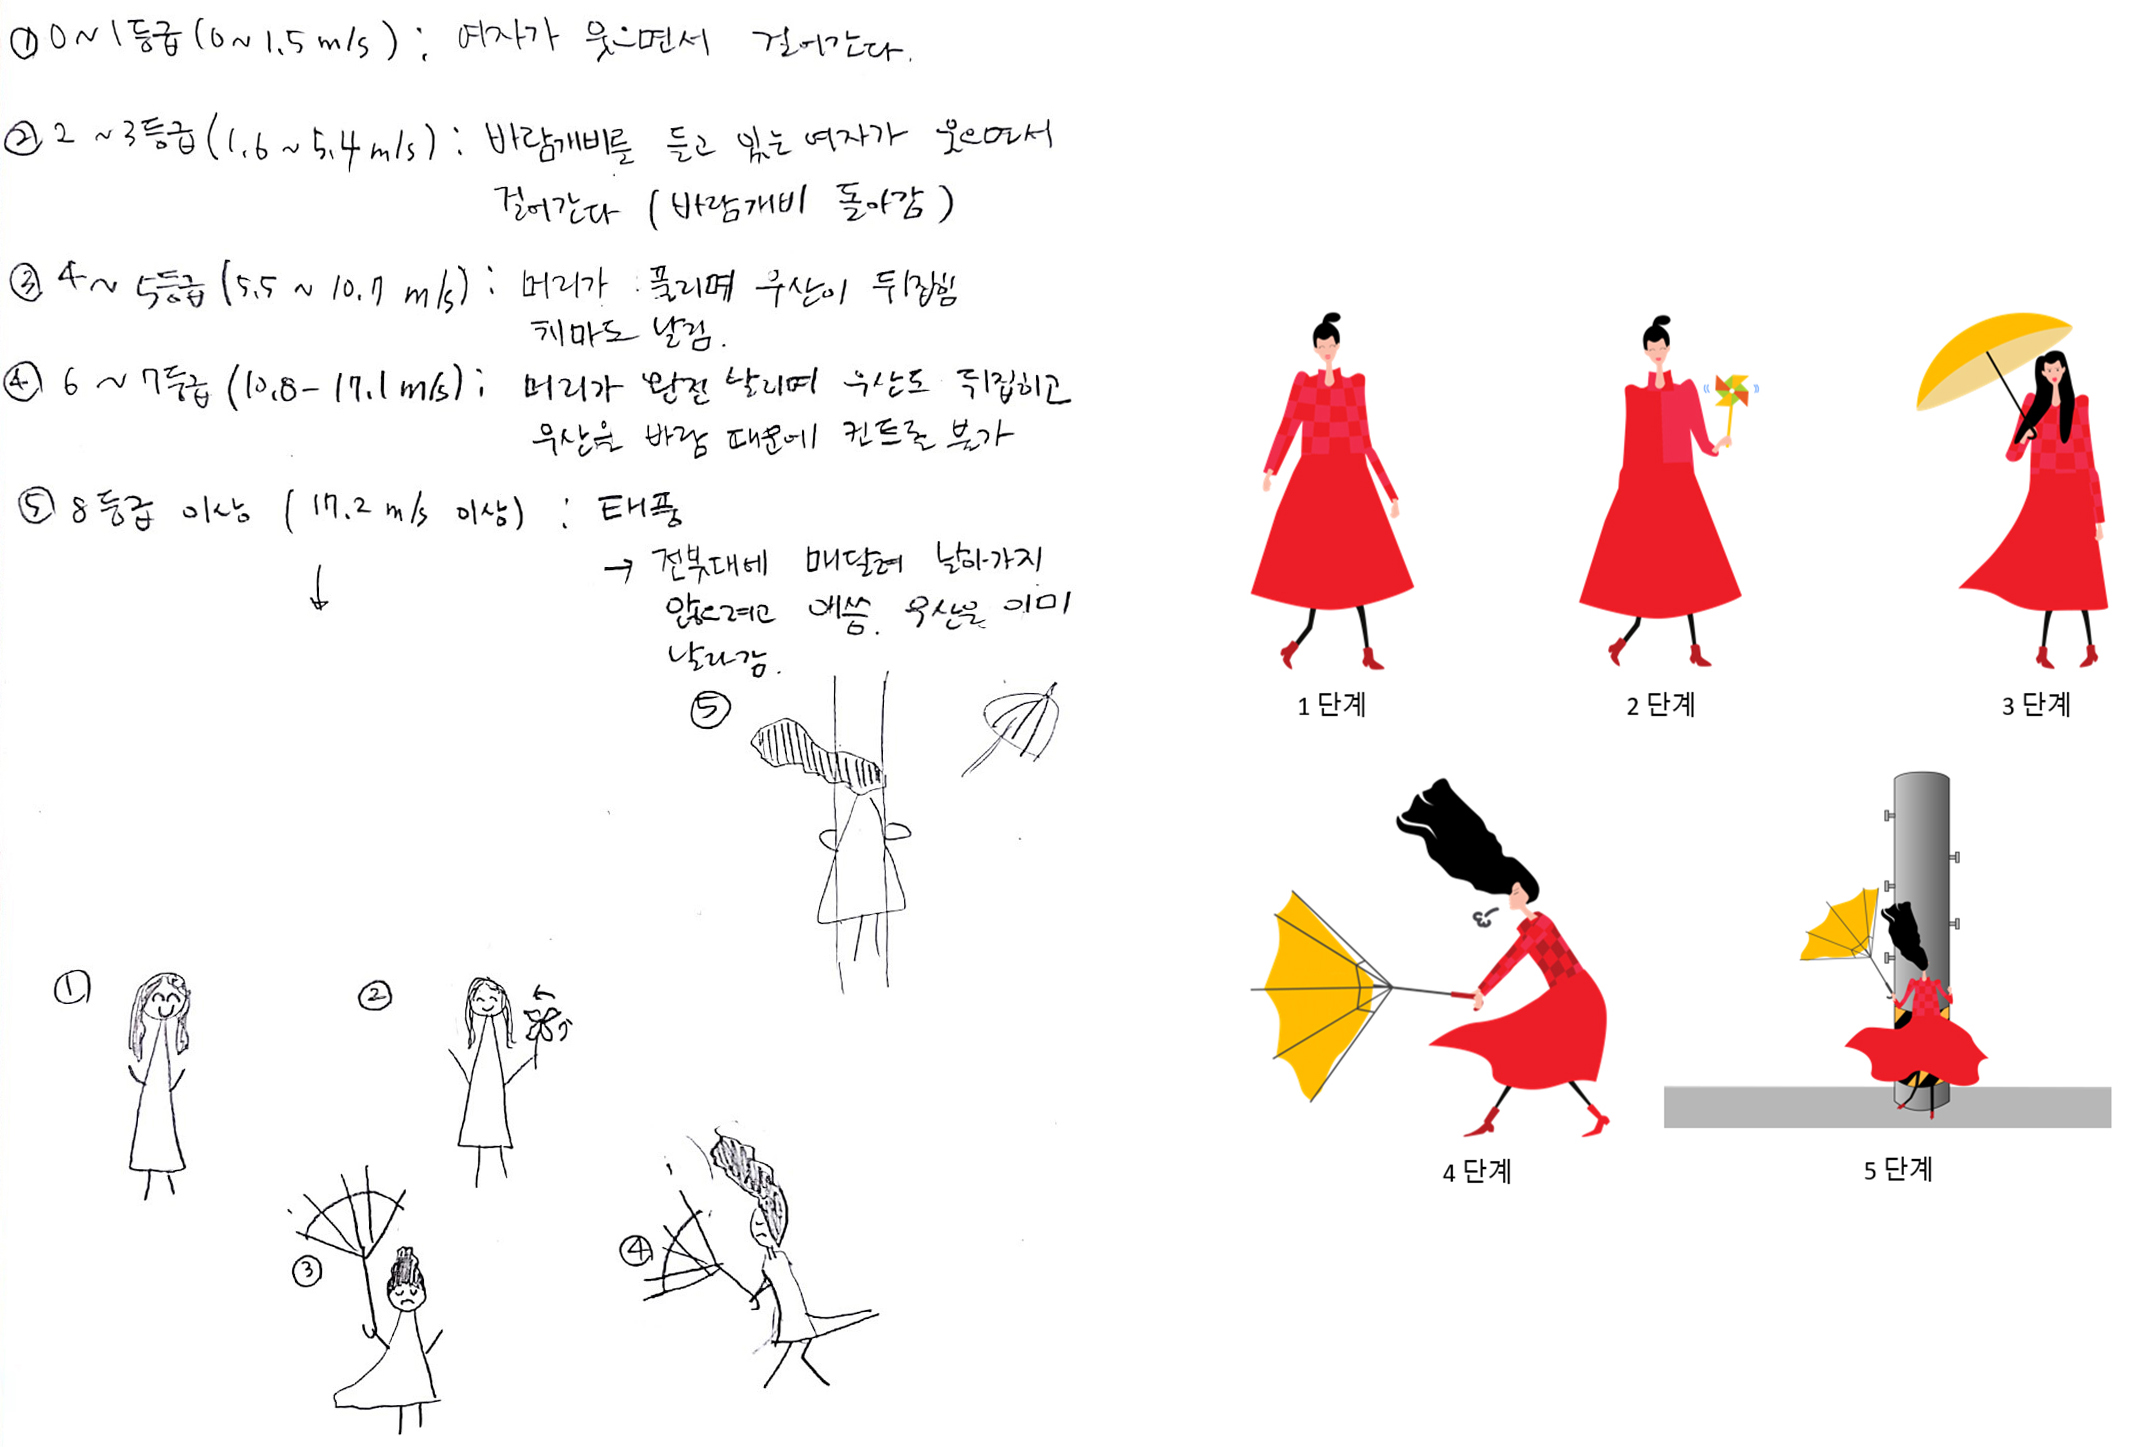 ① 0~1등급(0~1.5m/s) : 여자가 웃으면서 걸어간다.
② 2~3등급(1.6~5.4m/s) : 바람개비를 들고 있는 여자가 웃으면서
걸어간다 (바람개비 돌아감)
③ 4~5등급(5.5~10.7 m/s) : 머리가 풀리며 우산이 뒤집힘
치마도 날림.
④ 6~7등급(10.8-17.1m/s) : 머리가 완전 날리며 우산도 뒤집히고
우산을 바람 때문에 컨트롤 불가
⑤ 8등급 이상 (17.2 m/s 이상) : 태풍
→ 전봇대에 매달려 날아가지
않으려고 애씀. 우산은 이미
날라감.
⑤
①
②
③
④
1 단계
2 단계
3 단계
4 단계
5 단계